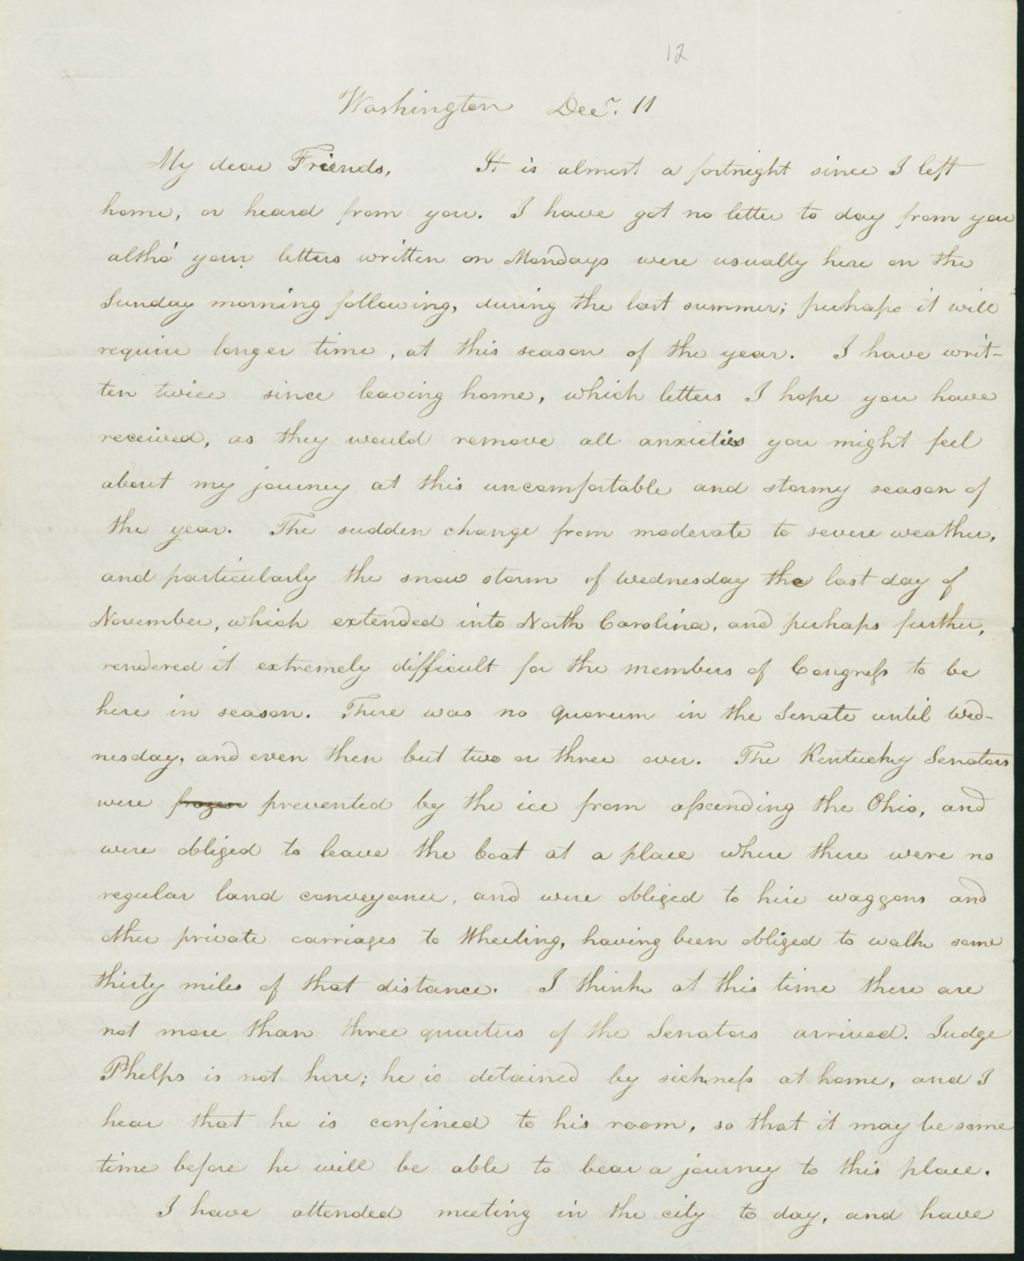 12
Washington Decr. 11
My dear Friends, It is almost a fortnight since I left
home, or heard from you. I have got no letter to day from you
altho' your letters written on Mondays were usually here on the
Sunday morning following, during the last summer; perhaps it will
require longer time, at this season of the year. I have writ-
ten twice since leaving home, which letters I hope you have
received, as they would remove all anxieties you might feel
about my journey at this uncomfortable and stormy season of
the year. The sudden change from moderate to severe weather,
and particularly the snow storm of Wednesday the last day of
November, which extended into North Carolina, and perhaps further,
rendered it extremely difficult for the members of Congress to be
here in season. There was no quorum in the Senate until Wed-
nesday, and even then but two or three over. The Kentucky Senators
were frozen prevented by the ice from assending the Ohio, and
were obliged to leave the boat at a place where there were no
regular land conveyance, and were obliged to hire waggons and
other private carriages to Wheeling, having been obliged to walk some
thirty miles of that distance. I think at this time there are
not more than three quarters of the Senators arrived. Judge
Phelps is not here; he is detained by sickness at home, and I
hear that he is confined to his room, so that it may be some
time before he will be able to bear a journey to this place.
I have attended meeting in the city to day, and have